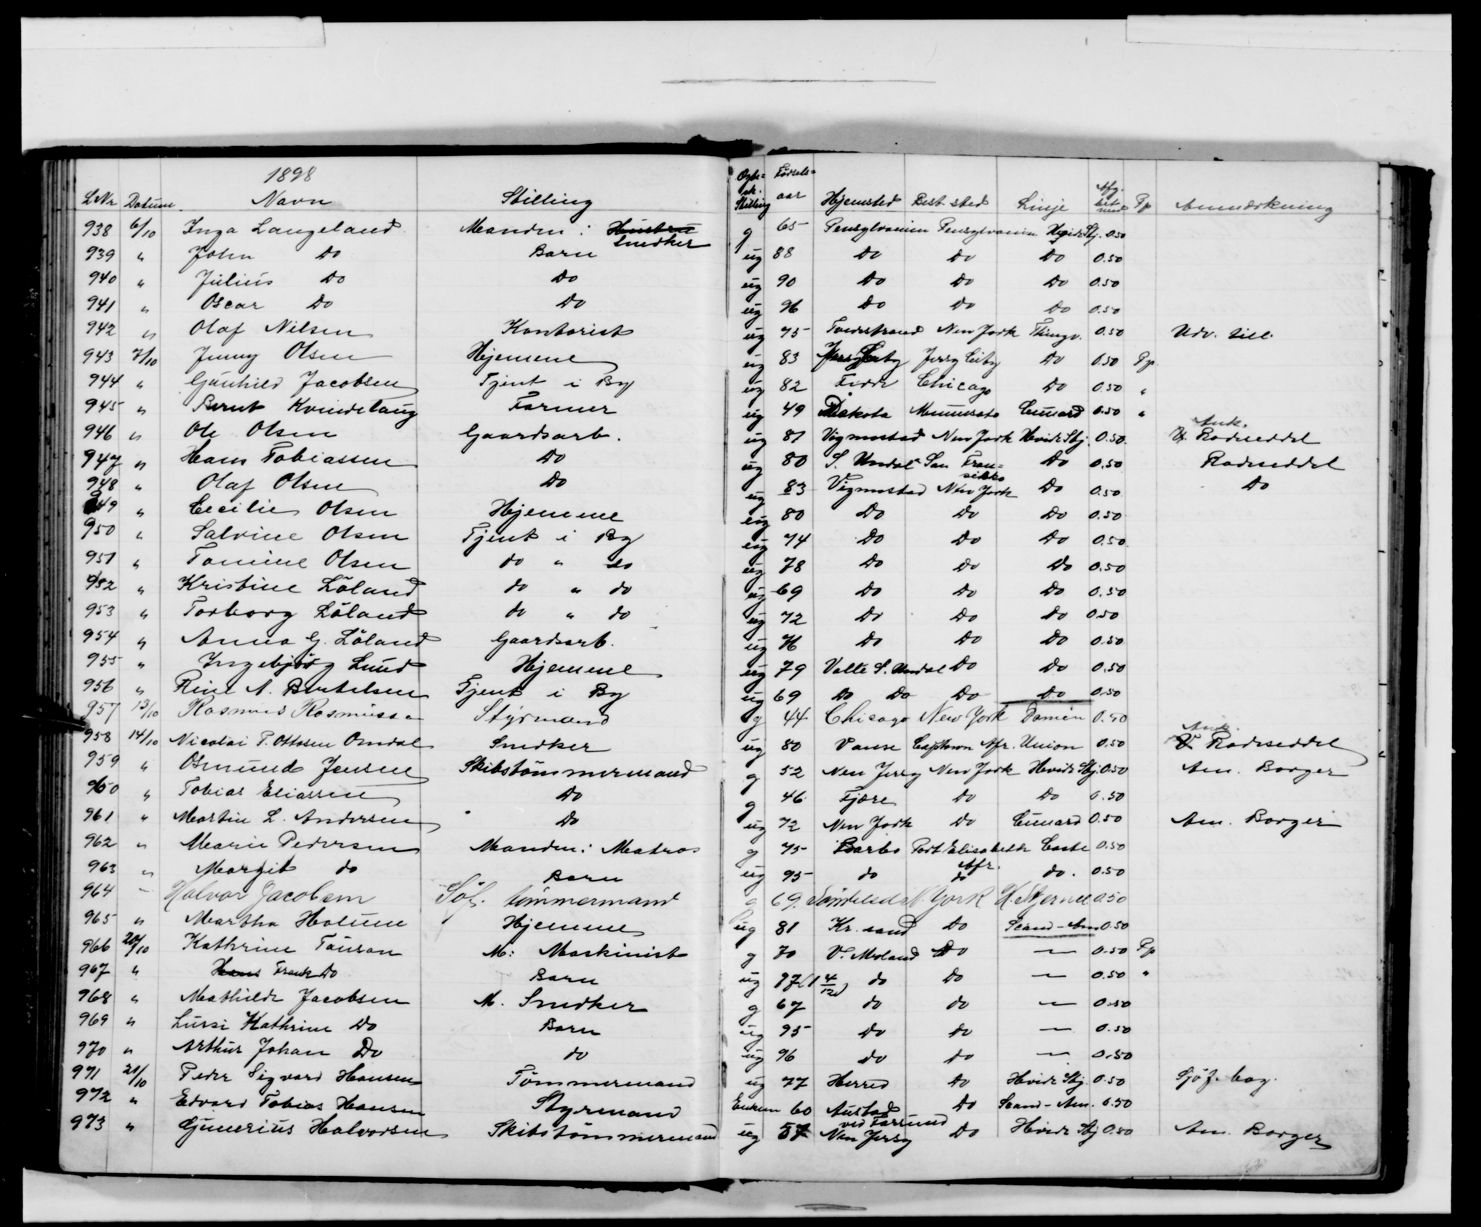 1898
L.Nr. Datum Navn Stilling Ægte-sk. Stilling Fødsels-aar Hjemsted Best. sted Linje Afg. Pp Anmærkning
938 6/10 Inga Langeland Manden: Snedker g 65 Pensylvanien Pensylvanien Hvide Stj. 0.50
939 " John Do Barn ug 88 Do Do Do 0.50
940 " Julius Do Do ug 90 Do Do Do 0.50
941 " Oscar Do Do ug 96 Do Do Do 0.50
942 " Olaf Nilsen Kontorist ug 75 New York Thingv. 0.50 Udv. till.
943 7/10 Jenny Olsen Hjemme ug 83 Jersy City Do 0.50 Pp
944 " Gunhild Jacobsen Tjent i By ug 82 Chicago Do 0.50 "
945 " Bernt Kvindelaug Farmer ug 49 Dakota Cunard 0.50 "
946 " Ole Olsen Gaardsarb. ug 81 Vigmostad New York Hvide Stj. 0.50 Ank. Radseddel
947 " Hans Tobiassen Do ug 80 S. Undal San Fransisko Do 0.50 Radseddel
948 " Olaf Olsen Do ug 83 Vigmostad New York Do 0.50 Do
949 " Cecilie Olsen Hjemme ug 80 Do Do Do 0.50
950 " Salvine Olsen Tjent i By ug 74 Do Do Do 0.50
951 " Tomine Olsen do " do ug 78 Do Do Do 0.50
952 " Kristine Løland do " do ug 69 Do Do Do 0.50
953 " Torborg Løland do " do ug 72 Do Do Do 0.50
954 " Anna G. Løland Gaardsarb. ug 76 Do Do Do 0.50
955 " Ingebjørg Lund Hjemme ug 79 Valle S. Undal Do Do 0.50
956 " A. Bertelsen Tjent i By ug 69 Do Do Do Do 0.50
957 13/10 Rasmus Rasmussen Styrmand g 44 Chicago New York 0.50
958 14/10 Nicolai T. Ottosen Omdal Snedker ug 80 Vanse Captown Afr. Union 0.50 Ank. Radseddel
959 " Osmund Jensen Skibstømmermand g 52 New Jersy New York Hvide Stj. 0.50 Am. Borger
960 " Tobias Eliassen Do g 46 Fjære Do Do 0.50
961 " Martin L. Andersen Do ug 72 New York Do Cunard 0.50 Am. Borger
962 " Marie Pedersen Manden: Matros g 75 Barbo Port Elisabeth Afr. Castle 0.50
963 " Margit do Barn ug 95 do do do. 0.50
964 – Halvor Jacobsen tømmermand g 69 N. York H. Stjerne 0.50
965 " Martha Holum Hjemme ug 81 Kr.sand Do Scand-Am 0.50
966 20/10 Kathrine M: Maskinist g 70 V. Moland Do — 0.50 Pp
967 " Hans Frank Do Barn ug 97 (1 4/12) do Do — 0.50 "
968 " Mathilde Jacobsen M. Snedker g 67 do do — 0.50
969 " Kathrine Do Barn ug 95 Do do — 0.50
970 " Arthur Johan Do do ug 96 do do — 0.50
971 21/10 Peder Sigvard Hansen Tømmermand ug 77 Herred Do Hvide Stj 0.50
972 " Edvard Tobias Hansen Styrmand Enkem 60 Austad ved Farsund Do Scand-Am. 0.50
973 " Gunerius Halvorsen Skibstømmermand ug 57 New Jersy Do Hvide Stj 0.50 Am. Borger